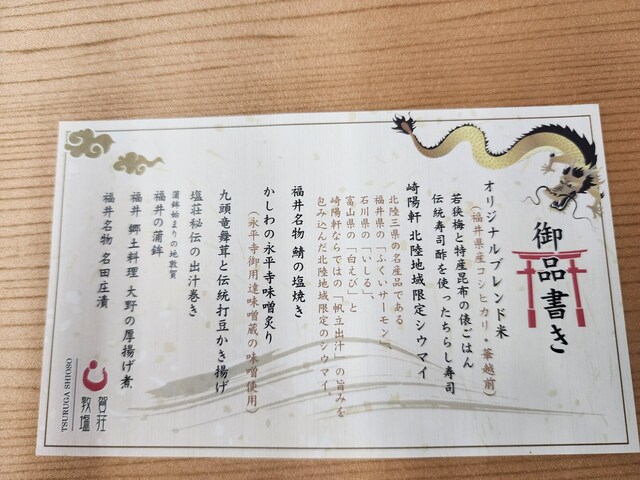 御品書き
オリジナルブレンド米
(福井県産コシヒカリ・華越前)
若狭梅と特産昆布の俵ごはん
伝統寿司酢を使ったちらし寿司
崎陽軒 北陸地域限定シウマイ
北陸三県の名産品である
福井県の「ふくいサーモン」、
石川県の「いしる」、
富山県の「白えび」と
崎陽軒ならではの「帆立出汁」の旨みを
包み込んだ北陸地域限定のシウマイ。
福井名物 鯖の塩焼き
かしわの永平寺味噌炙り
(永平寺御用達味噌蔵の味噌使用)
九頭竜舞茸と伝統打豆かき揚げ
塩荘秘伝の出汁巻き
蒲鉾始まりの地敦賀
福井の蒲鉾
福井 郷土料理 大野の厚揚げ煮
福井名物 名田庄漬
敦賀
塩荘
TSURUGA SHIOSO